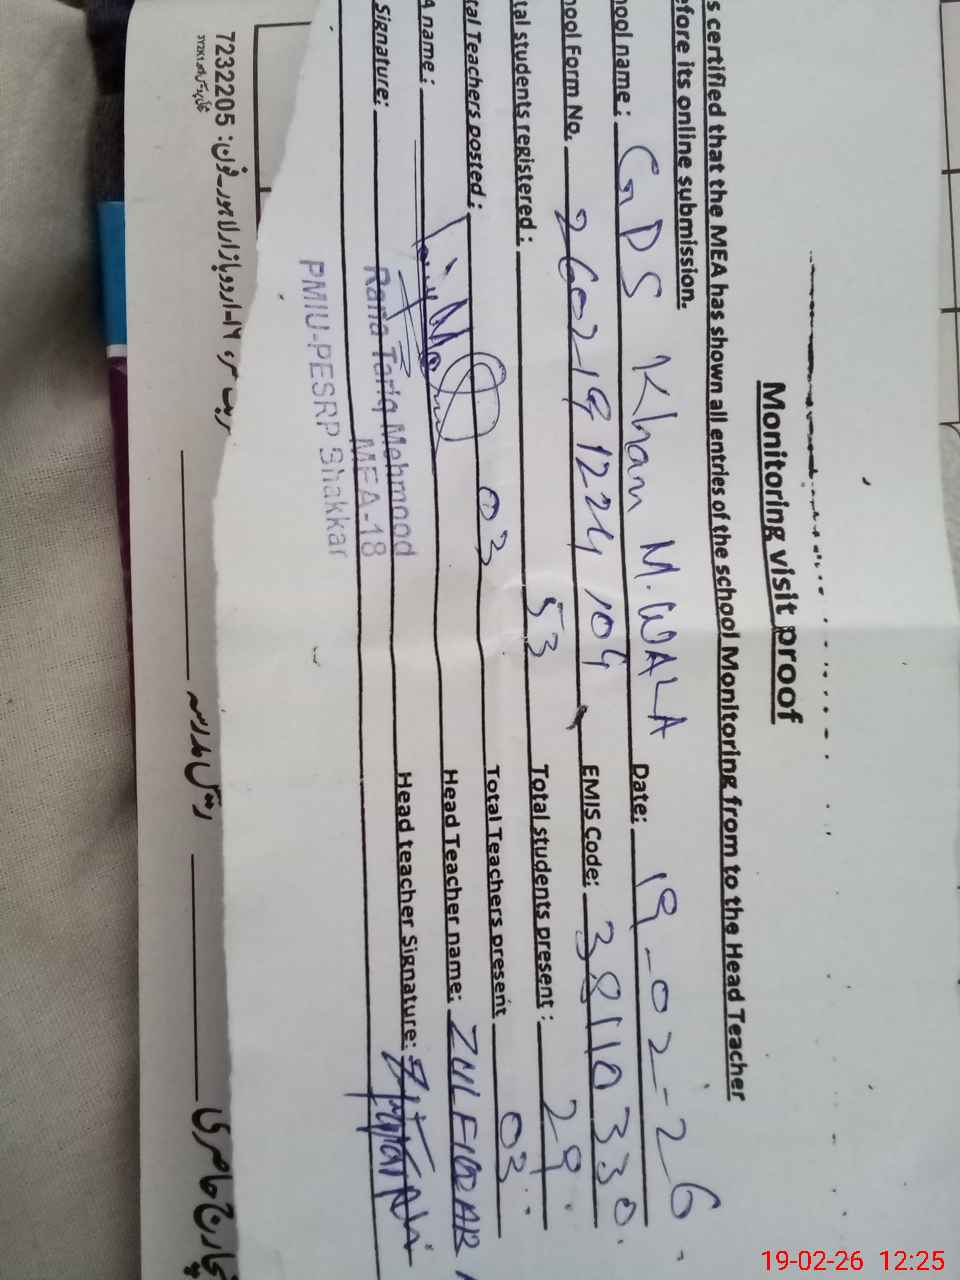 Monitoring visit proof
s certified that the MEA has shown all entries of the school Monitoring from to the Head Teacher
efore its online submission.
ool name: GPS Khan M. WALA Date: 19-02-26
ool Form No. 26021912244104 EMIS Code: 38110330
tal students registered: 53 Total students present: 29
tal Teachers posted: 03 Total Teachers present 03
A name: Head Teacher name: ZULFIQAR
Signature: Head teacher Signature:
Rana Tariq Mehmood
MEA-18
PMIU-PESRP Bhakkar
اردو بازار لاہور۔ فون: 7232205
رئیس مدرسہ
انچارج حاضری
19-02-26 12:25